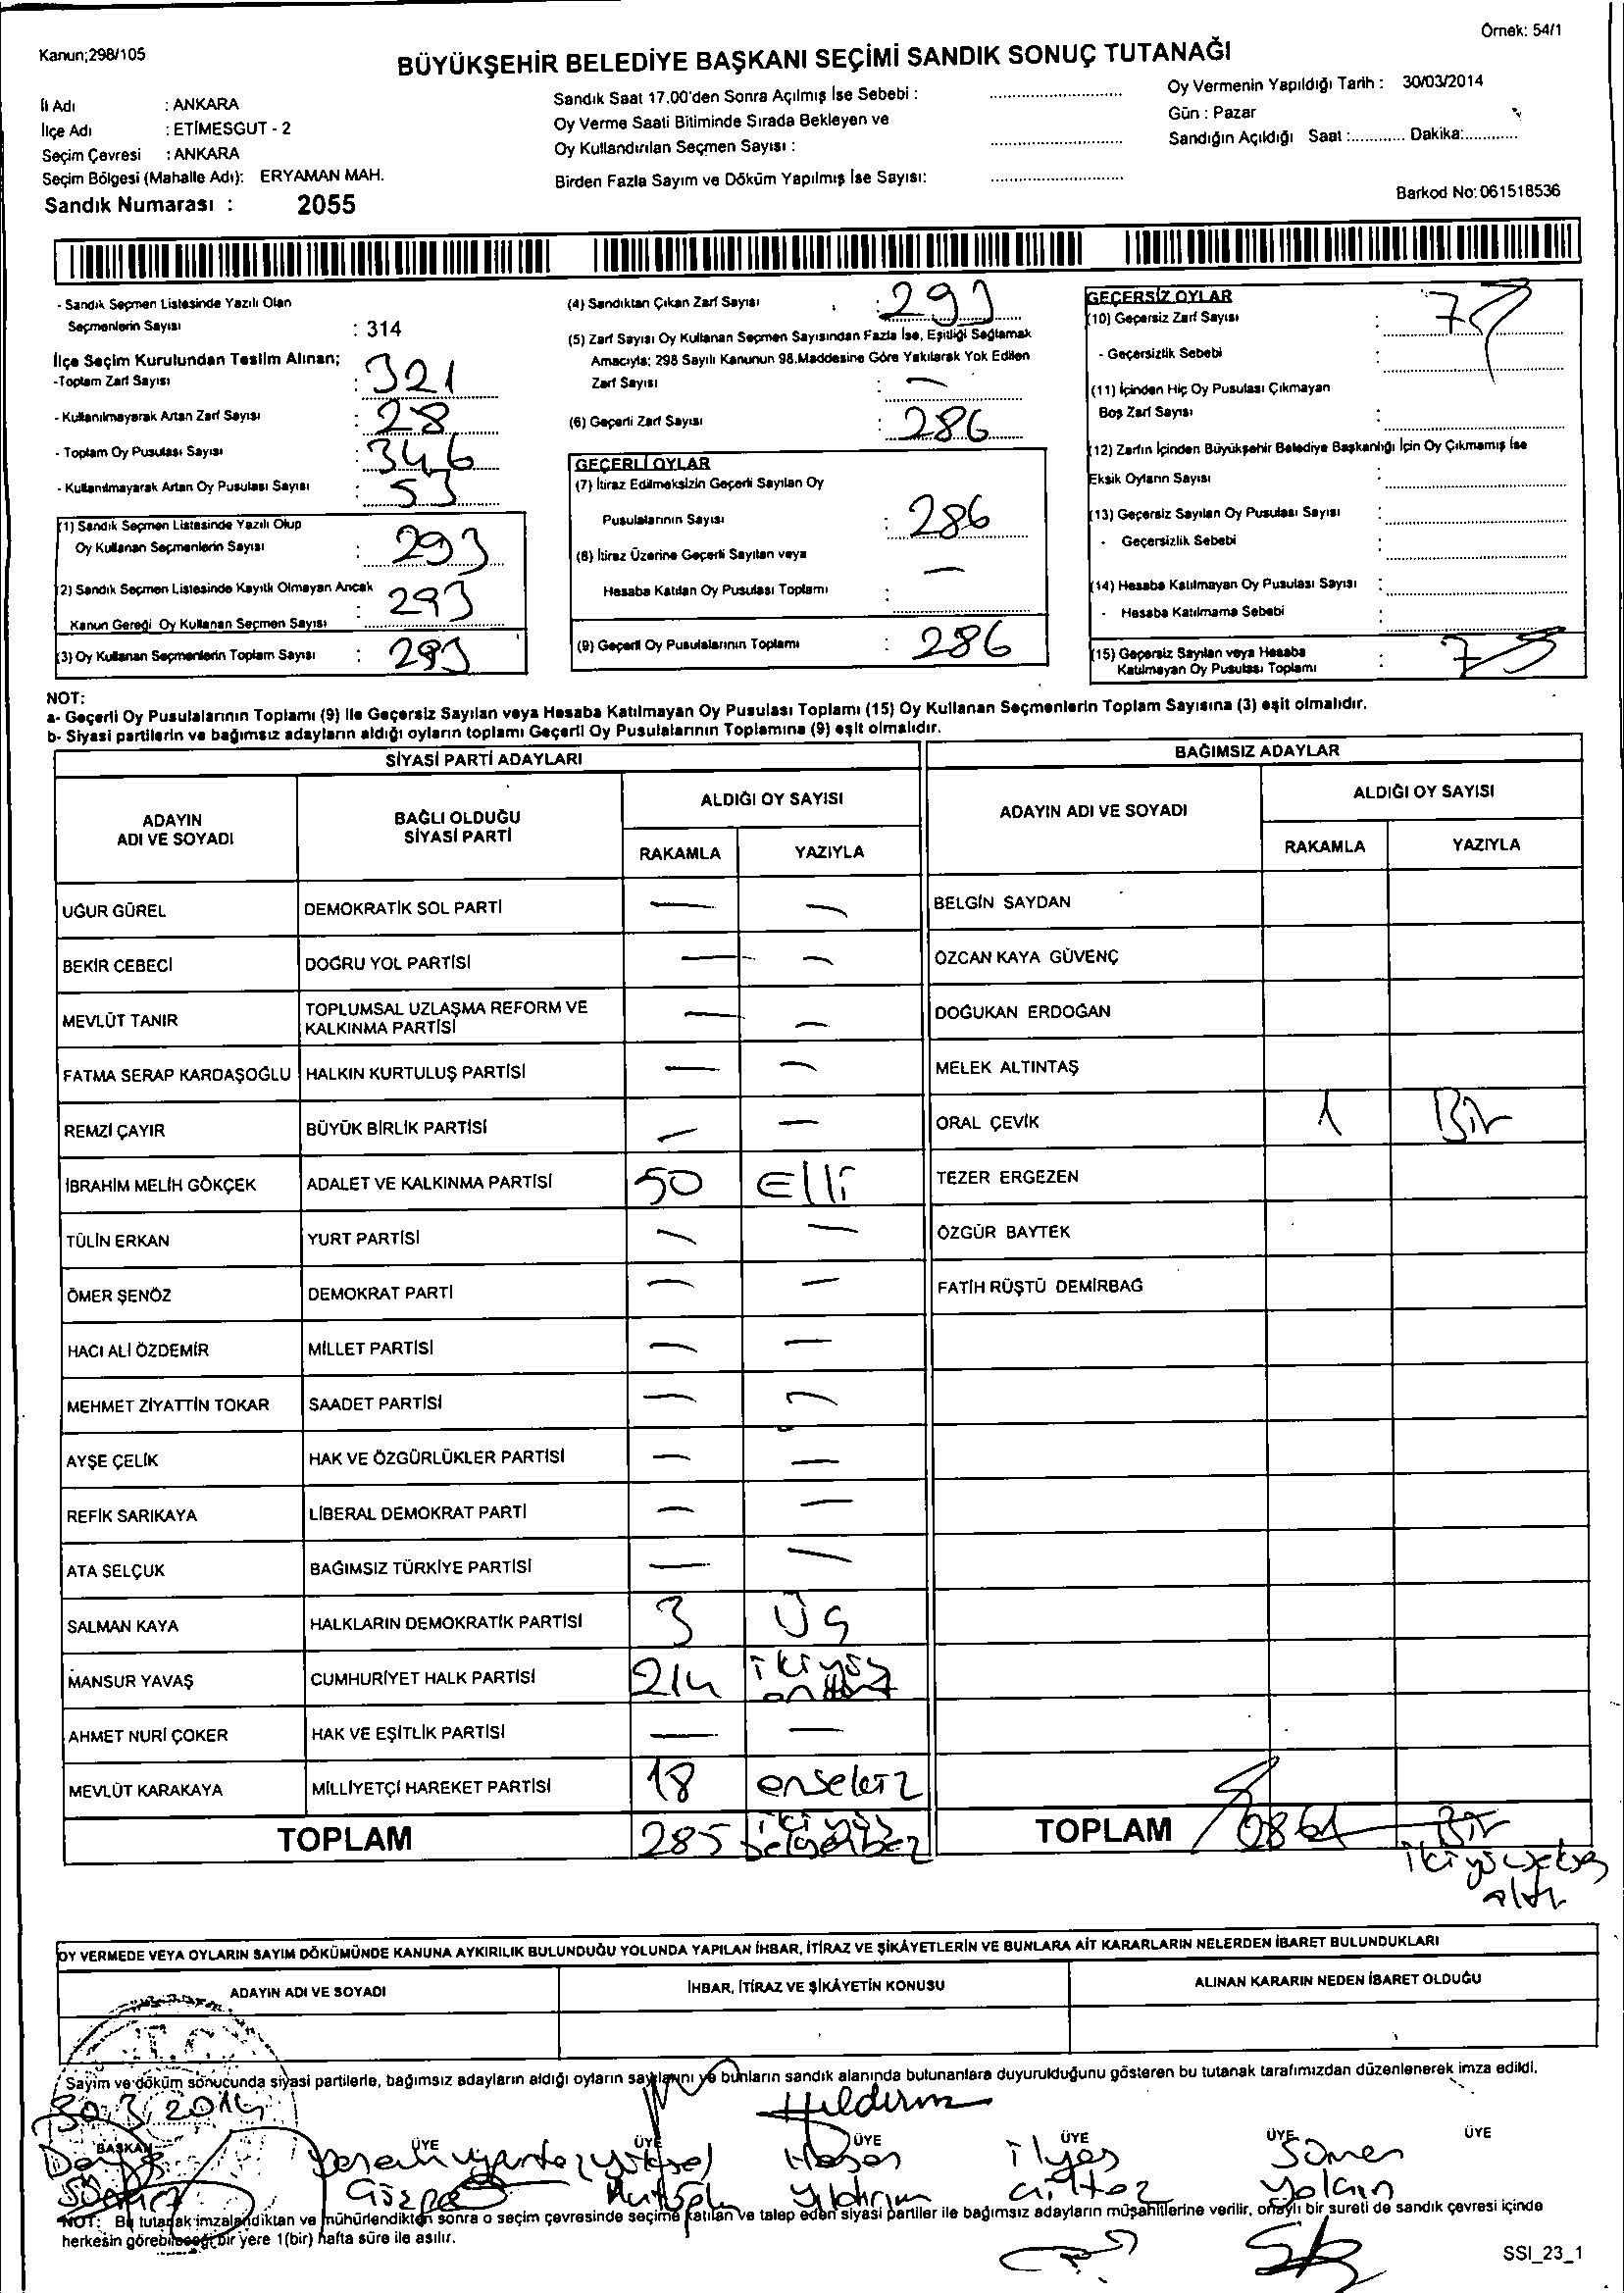 Kanun;298/105
Örnek: 54/1
BÜYÜKŞEHİR BELEDİYE BAŞKANI SEÇİMİ SANDIK SONUÇ TUTANAĞI
İl Adı : ANKARA
İlçe Adı : ETİMESGUT - 2
Seçim Çevresi : ANKARA
Seçim Bölgesi (Mahalle Adı): ERYAMAN MAH.
Sandık Numarası : 2055
Sandık Saat 17.00'den Sonra Açılmış İse Sebebi :
Oy Verme Saati Bitiminde Sırada Bekleyen ve
Oy Kullandırılan Seçmen Sayısı :
Birden Fazla Sayım ve Döküm Yapılmış İse Sayısı:
Oy Vermenin Yapıldığı Tarih : 30/03/2014
Gün : Pazar
Sandığın Açıldığı Saat :............ Dakika:............
Barkod No:061518536
- Sandık Seçmen Listesinde Yazılı Olan
Seçmenlerin Sayısı : 314
İlçe Seçim Kurulundan Teslim Alınan;
-Toplam Zarf Sayısı : 321
- Kullanılmayarak Artan Zarf Sayısı : 28
- Toplam Oy Pusulası Sayısı : 346
- Kullanılmayarak Artan Oy Pusulası Sayısı : 53
(1) Sandık Seçmen Listesinde Yazılı Olup
Oy Kullanan Seçmenlerin Sayısı : 293
(2) Sandık Seçmen Listesinde Kayıtlı Olmayan Ancak
Kanun Gereği Oy Kullanan Seçmen Sayısı : 293
(3) Oy Kullanan Seçmenlerin Toplam Sayısı : 293
(4) Sandıktan Çıkan Zarf Sayısı : 293
(5) Zarf Sayısı Oy Kullanan Seçmen Sayısından Fazla İse, Eşitliği Sağlamak
Amacıyla; 298 Sayılı Kanunun 98.Maddesine Göre Yakılarak Yok Edilen
Zarf Sayısı : —
(6) Geçerli Zarf Sayısı : 286
GEÇERLİ OYLAR
(7) İtiraz Edilmeksizin Geçerli Sayılan Oy
Pusulalarının Sayısı : 286
(8) İtiraz Üzerine Geçerli Sayılan veya
Hesaba Katılan Oy Pusulası Toplamı : —
(9) Geçerli Oy Pusulalarının Toplamı : 286
GEÇERSİZ OYLAR
(10) Geçersiz Zarf Sayısı : 7
- Geçersizlik Sebebi :
(11) İçinden Hiç Oy Pusulası Çıkmayan
Boş Zarf Sayısı :
(12) Zarfın İçinden Büyükşehir Belediye Başkanlığı İçin Oy Çıkmamış İse
Eksik Oyların Sayısı :
(13) Geçersiz Sayılan Oy Pusulası Sayısı :
- Geçersizlik Sebebi :
(14) Hesaba Katılmayan Oy Pusulası Sayısı :
- Hesaba Katılmama Sebebi :
(15) Geçersiz Sayılan veya Hesaba
Katılmayan Oy Pusulası Toplamı : 7
NOT:
a- Geçerli Oy Pusulalarının Toplamı (9) ile Geçersiz Sayılan veya Hesaba Katılmayan Oy Pusulası Toplamı (15) Oy Kullanan Seçmenlerin Toplam Sayısına (3) eşit olmalıdır.
b- Siyasi partilerin ve bağımsız adayların aldığı oyların toplamı Geçerli Oy Pusulalarının Toplamına (9) eşit olmalıdır.
SİYASİ PARTİ ADAYLARI
ADAYIN ADI VE SOYADI
BAĞLI OLDUĞU SİYASİ PARTİ
ALDIĞI OY SAYISI
RAKAMLA YAZIYLA
UĞUR GÜREL DEMOKRATİK SOL PARTİ — —
BEKİR CEBECİ DOĞRU YOL PARTİSİ — —
MEVLÜT TANIR TOPLUMSAL UZLAŞMA REFORM VE KALKINMA PARTİSİ — —
FATMA SERAP KARDAŞOĞLU HALKIN KURTULUŞ PARTİSİ — —
REMZİ ÇAYIR BÜYÜK BİRLİK PARTİSİ — —
İBRAHİM MELİH GÖKÇEK ADALET VE KALKINMA PARTİSİ 50 Elli
TÜLİN ERKAN YURT PARTİSİ — —
ÖMER ŞENÖZ DEMOKRAT PARTİ — —
HACI ALİ ÖZDEMİR MİLLET PARTİSİ — —
MEHMET ZİYATTİN TOKAR SAADET PARTİSİ — —
AYŞE ÇELİK HAK VE ÖZGÜRLÜKLER PARTİSİ — —
REFİK SARIKAYA LİBERAL DEMOKRAT PARTİ — —
ATA SELÇUK BAĞIMSIZ TÜRKİYE PARTİSİ — —
SALMAN KAYA HALKLARIN DEMOKRATİK PARTİSİ 3 Üç
MANSUR YAVAŞ CUMHURİYET HALK PARTİSİ 214 ikiyüz
AHMET NURİ ÇOKER HAK VE EŞİTLİK PARTİSİ — —
MEVLÜT KARAKAYA MİLLİYETÇİ HAREKET PARTİSİ 18 onsekiz
TOPLAM 285
BAĞIMSIZ ADAYLAR
ADAYIN ADI VE SOYADI
ALDIĞI OY SAYISI
RAKAMLA YAZIYLA
BELGİN SAYDAN
ÖZCAN KAYA GÜVENÇ
DOĞUKAN ERDOĞAN
MELEK ALTINTAŞ
ORAL ÇEVİK 1 Bir
TEZER ERGEZEN
ÖZGÜR BAYTEK
FATİH RÜŞTÜ DEMİRBAĞ
TOPLAM Bir
altı
OY VERMEDE VEYA OYLARIN SAYIM DÖKÜMÜNDE KANUNA AYKIRILIK BULUNDUĞU YOLUNDA YAPILAN İHBAR, İTİRAZ VE ŞİKÂYETLERİN VE BUNLARA AİT KARARLARIN NELERDEN İBARET BULUNDUKLARI
ADAYIN ADI VE SOYADI
İHBAR, İTİRAZ VE ŞİKÂYETİN KONUSU
ALINAN KARARIN NEDEN İBARET OLDUĞU
T.C.
Sayım ve döküm sonucunda siyasi partilerle, bağımsız adayların aldığı oyların sayılarını ve bunların sandık alanında bulunanlara duyurulduğunu gösteren bu tutanak tarafımızdan düzenlenerek imza edildi.
30/3/2014
BAŞKAN ÜYE ÜYE ÜYE ÜYE ÜYE ÜYE
Yüksel Hasan İlyas
Yıldırım Yalçın
NOT: Bu tutanak imzalandıktan ve mühürlendikten sonra o seçim çevresinde seçime katılan ve talep eden siyasi partiler ile bağımsız adayların müşahitlerine verilir, onaylı bir sureti de sandık çevresi içinde
herkesin görebileceği bir yere 1(bir) hafta süre ile asılır.
SSI_23_1